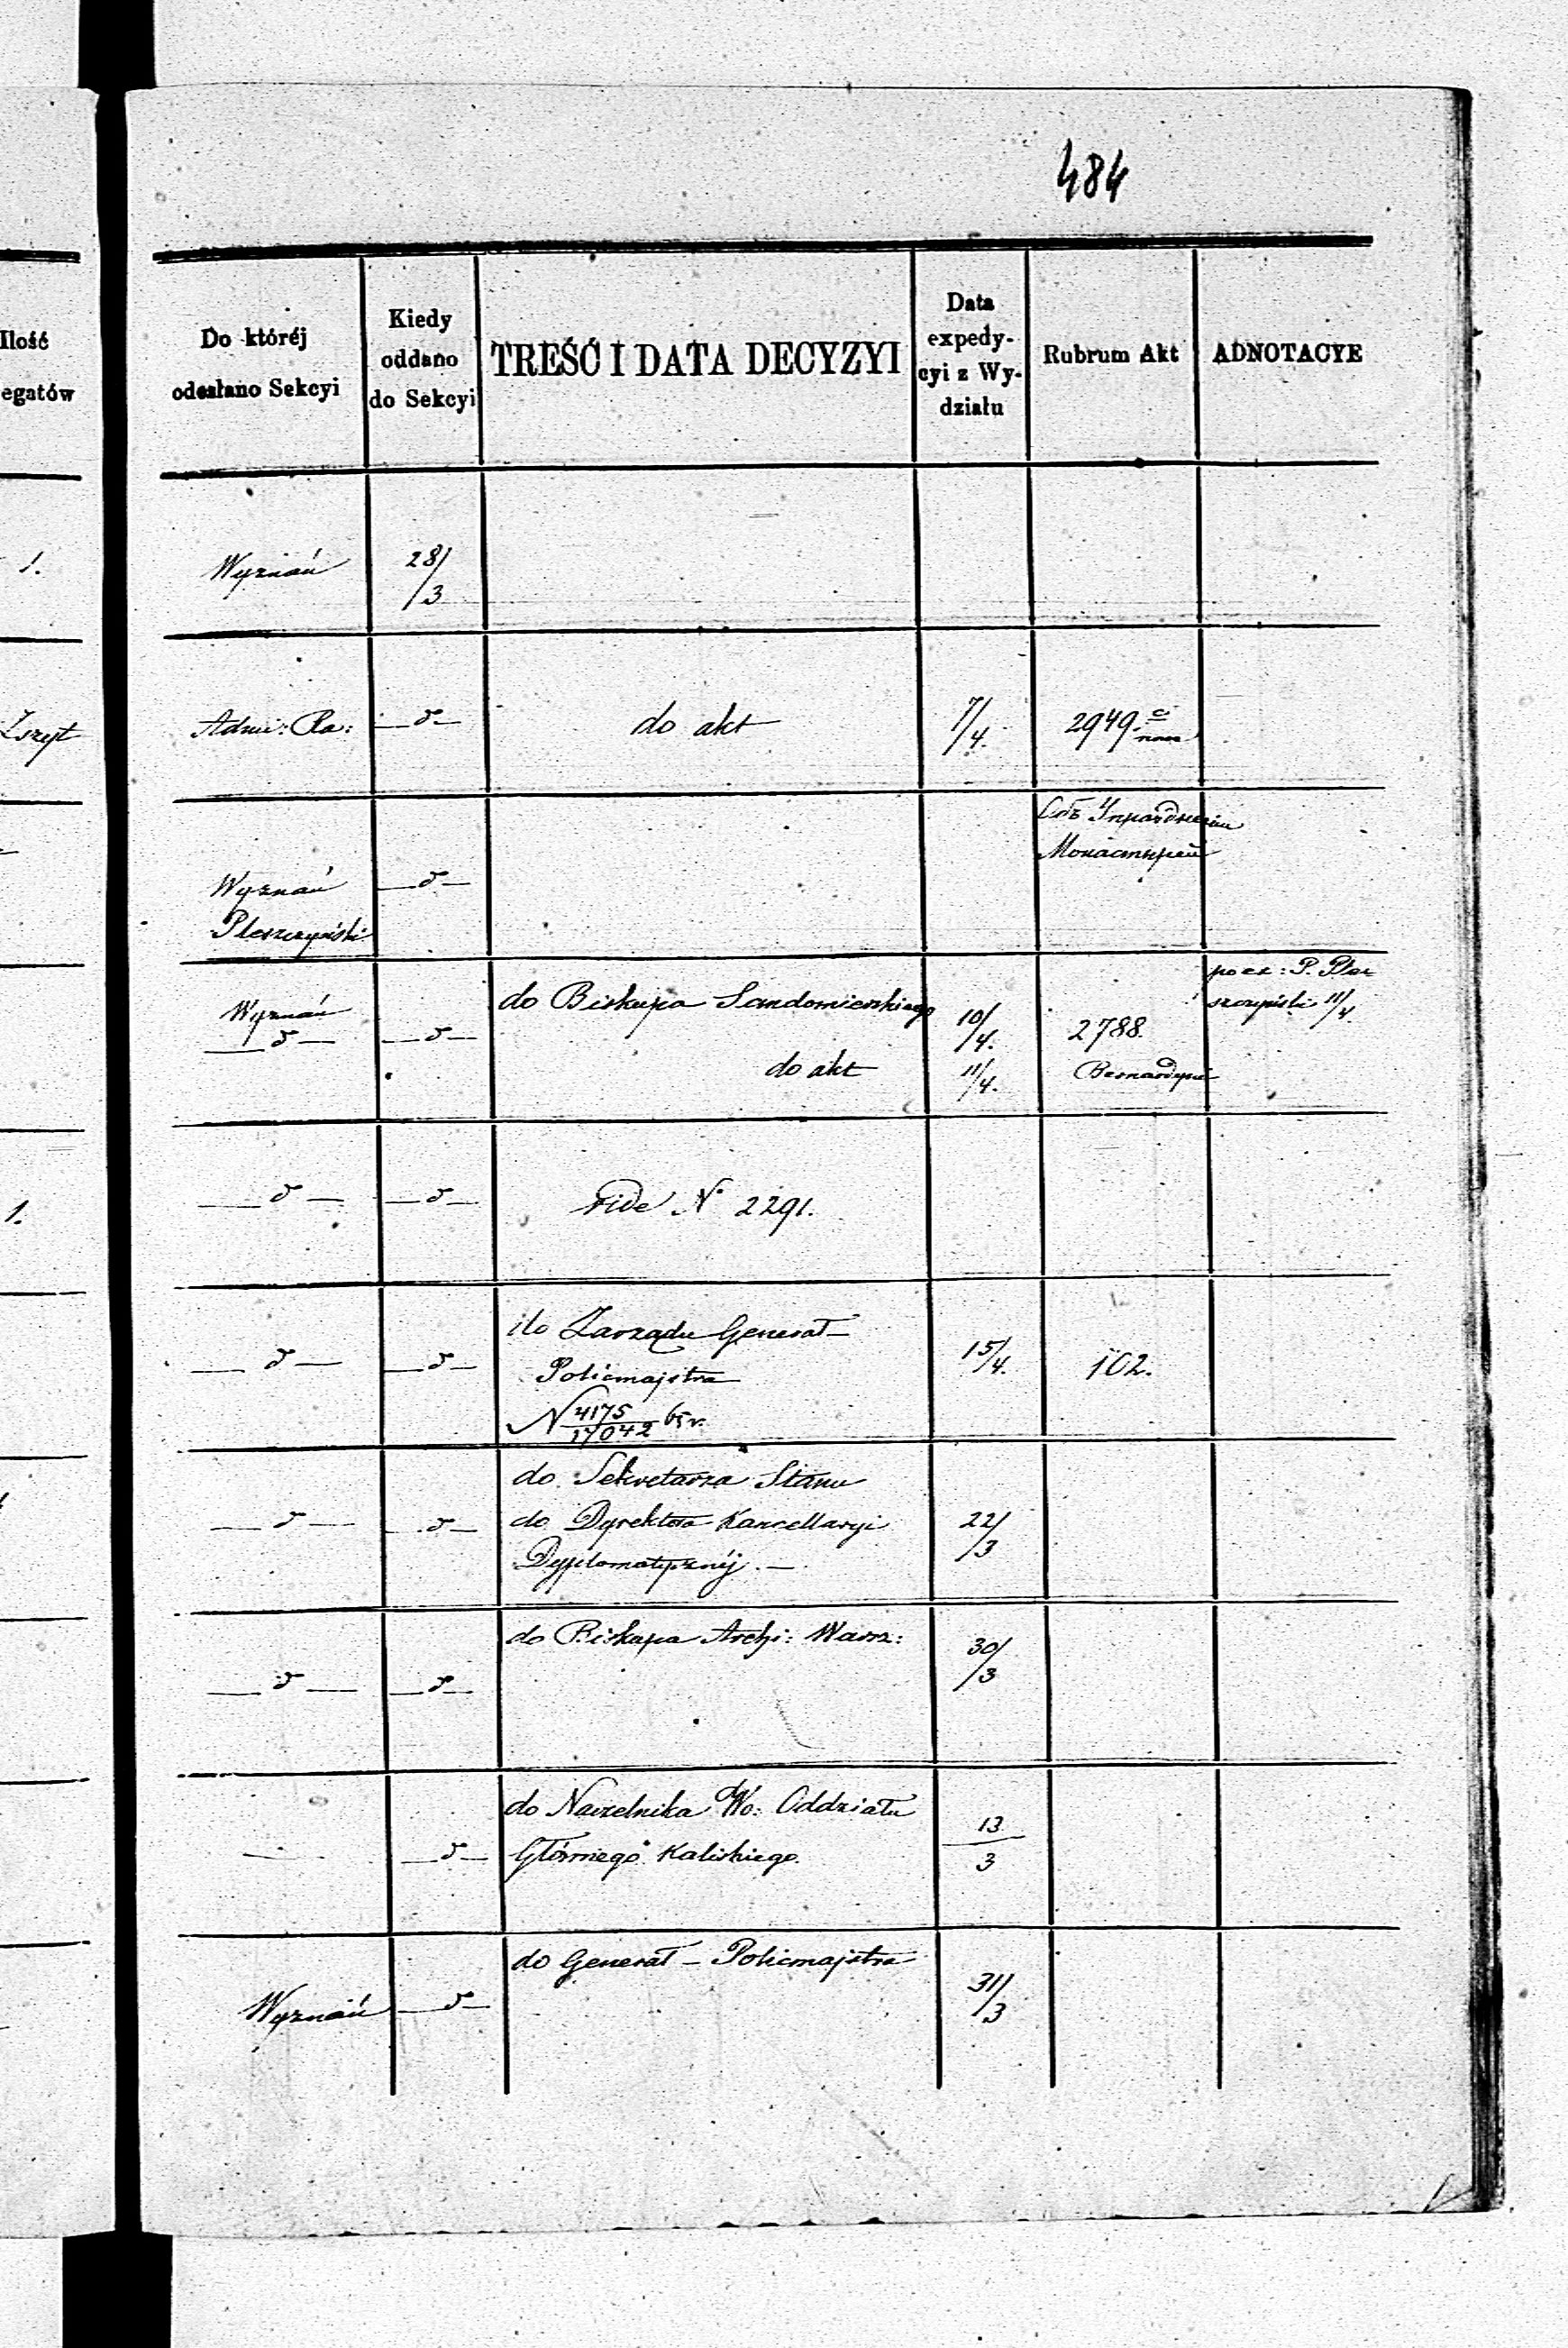 484
Ilość
egatów
Do któréj
odesłano Sekcyi
Kiedy
oddano
do Sekcyi
TREŚĆ I DATA DECYZYI
Data
expedy-
cyi z Wy-
działu
Rubrum Akt
ADNOTACYE
1.
Wyznań
28/3
Zszyt
Admi: Ra:
—δ—
do akt
7/4.
2949.
Wyznań
Pleszczyński
—δ—
Объ Упраздненіи
Монастырей
Wyznań
—δ—
—δ—
do Biskupa Sandomierskiego
10/4.
do akt
11/4.
2788.
Bernardyni
P. Plesz
szczyński 11/4.
1.
—δ—
—δ—
vide N° 2291.
—δ—
—δ—
do Zarządu Generał-
Policmajstra
N 4175/17042 65 r.
15/4.
102.
—δ—
—δ—
do Sekretarza Stanu
do Dyrektora Kancellaryi
Dyplomatycznéj. —
22/3
—δ—
—δ—
do Biskupa Archi: Warsz:
30/3
—
—δ—
do Naczelnika Wo: Oddziału
Głównego Kaliskiego.
13/3
Wyznań
—δ—
do Generał - Policmajstra
31/3